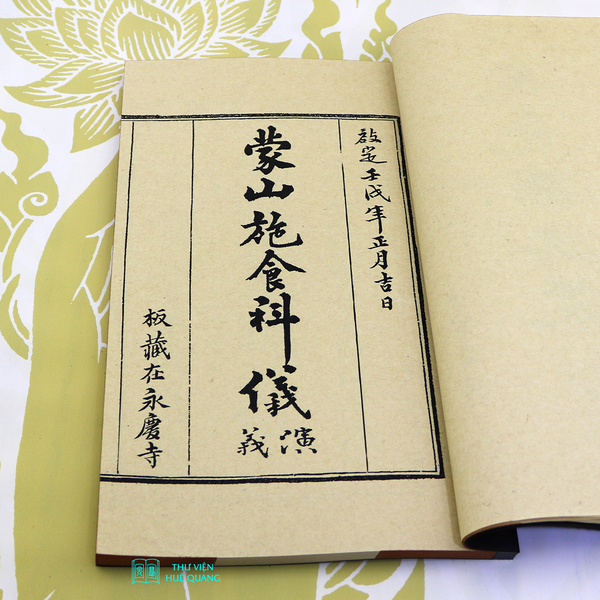 啟定壬戌年正月吉日
蒙山施食科儀
演義
板藏在永慶寺
THƯ VIỆN
HUỆ QUANG